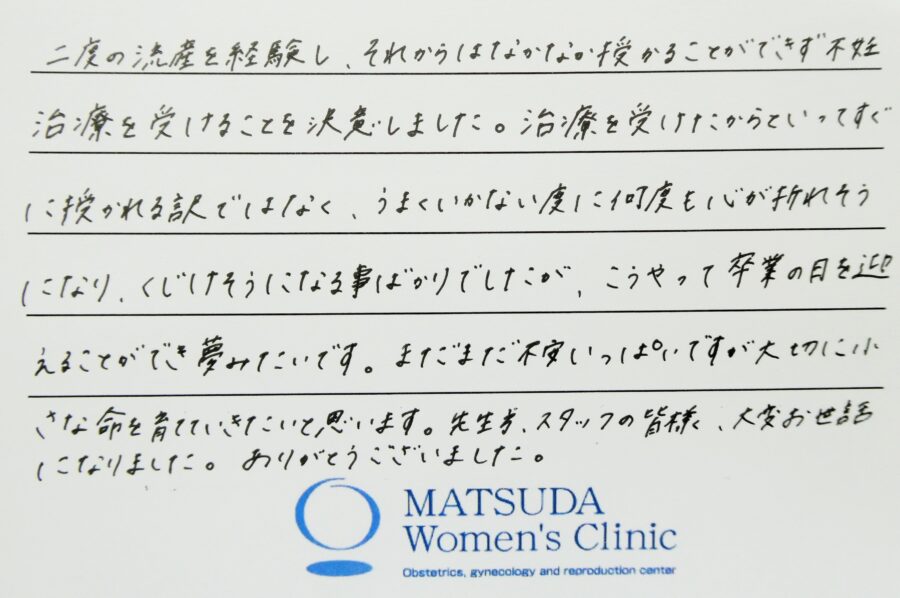 二度の流産を経験し、それからはなかなか授かることができず不妊
治療を受けることを決意しました。治療を受けたからといってすぐ
に授かれる訳ではなく、うまくいかない度に何度も心が折れそう
になり、くじけそうになる事ばかりでしたが、こうやって卒業の日を迎
えることができ夢みたいです。まだまだ不安いっぱいですが大切に小
さな命を育てていきたいと思います。先生方、スタッフの皆様、大変お世話
になりました。ありがとうございました。
MATSUDA
Women's Clinic
Obstetrics, gynecology and reproduction center